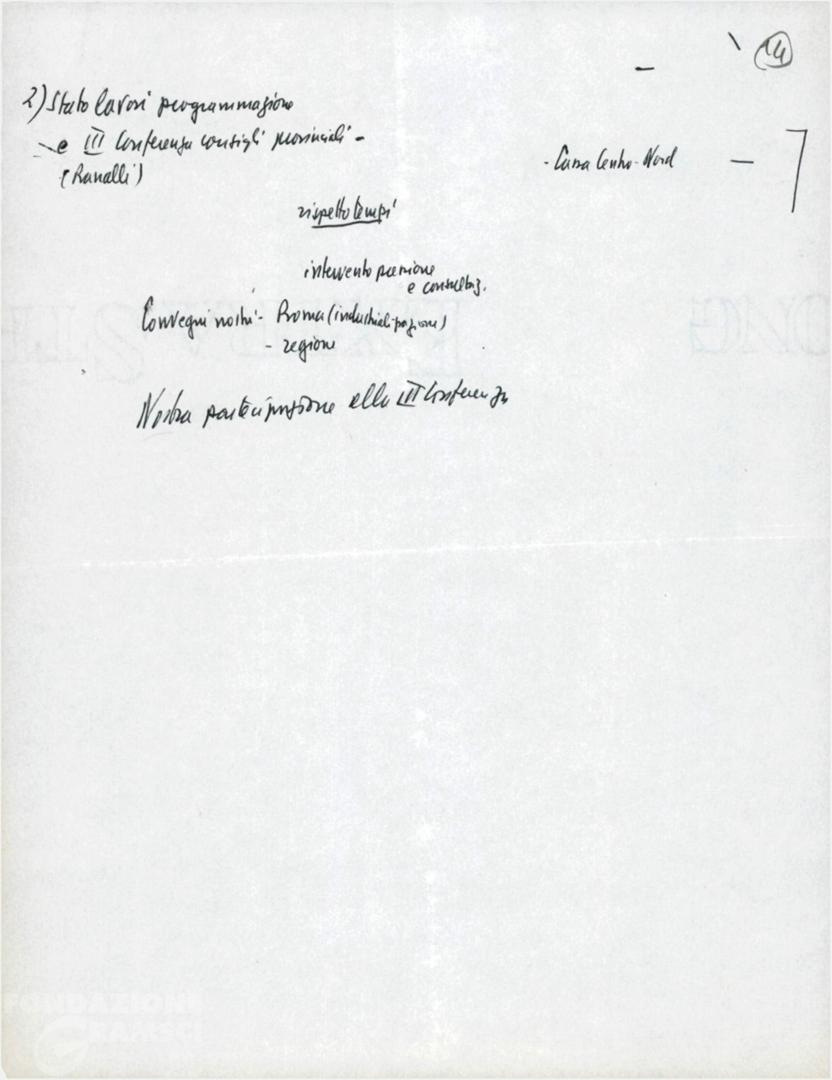 14
2) Stato lavori programmazione
e III Conferenza consigli provinciali -
(Ranalli)
- Cassa Centro-Nord -
rispetto tempi
intervento
e consultaz.
Convegni nostri - Roma (industrializzazione)
- regione
Nostra partecipazione alla III Conferenza
FONDAZIONE
GRAMSCI